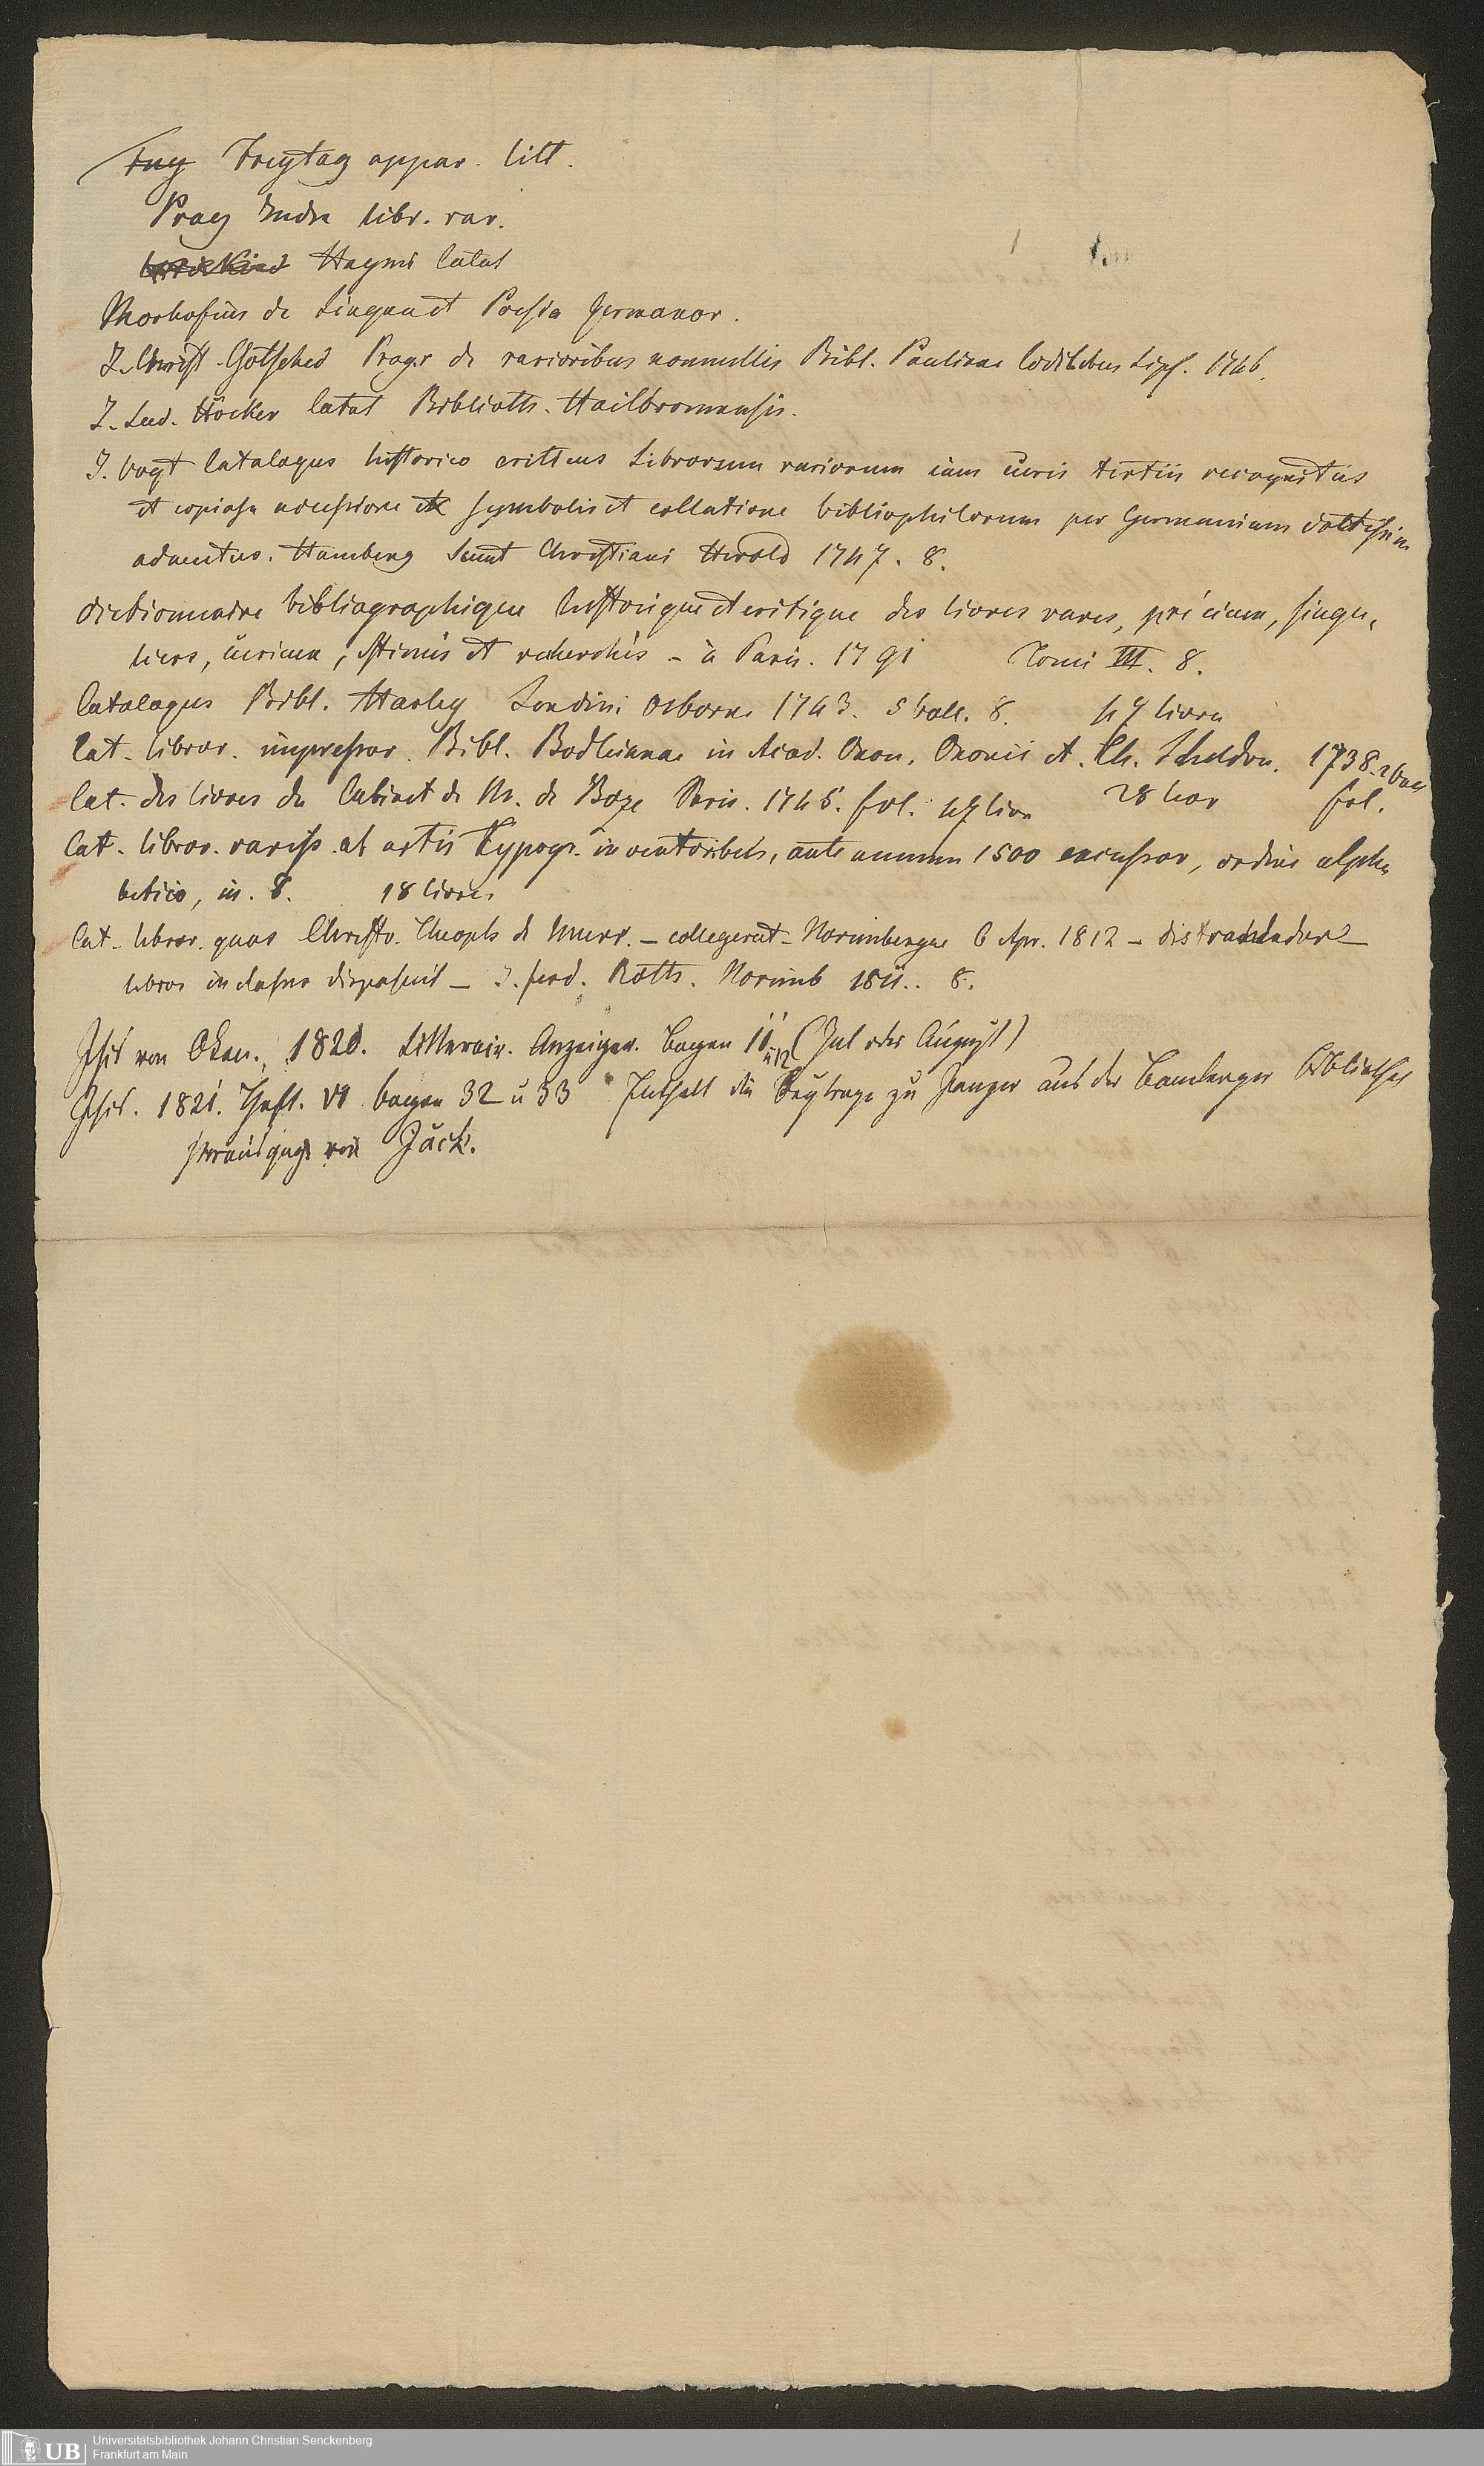 Frey Freytag appar. litt.
Pray Index libr. rar.
Haymi Catat
Morhofius de Lingua et Poesia Germanor.
J. Christ. Gotsched Progr de rarioribus nonnullis Bibl. Paulinae Codicibus Lips. 1746.
J. Lud. Höcker Catal Biblioth. Hailbronnensis.
J. Vogt Catalogus historico criticus Librorum rariorum iam curis tertiis recognitus
et copiosa accessione ex symbolis et collatione bibliophilorum per Germaniam doctissim
adauctus. Hamburg Sumt Christiani Herold 1747. 8.
dictionnaire bibliographique historique et critique des livres rares, précieux, singu,
liers, curieux, estimés et recherchés - à Paris. 1791 Tomi III. 8.
Catalogus Bibl. Harley Londini Osborne 1743. 5 Voll. 8. 47 livres
Cat. libror. impressor. Bibl. Bodleianae in Acad. Oxon. Oxonii et. Th. Scheldon. 1738. 2 Voll
Cat. des livres du Cabinet de M. de Boze Paris. 1745. fol. 47 livr 28 livr fol.
Cat. libror. rariss. ab artis Typogr. inventoribus, ante annum 1500 excussor, ordine alpha
betico, in. 8. 18 livres
Cat. libror. quos Christo. Theoph de Murr. - collegerat - Norimbergae 6 Apr. 1812 - distrahendor
libros in classes disposuit - J. ferd. Roth. Norimb 1811. 8.
Isis von Oken. 1820. Litterair. Anzeiger. Bogen 11 u 12 (Jul oder August)
Isis. 1821. Heft. VI bogen 32 u 33 Enthält die Beytrage zu Panzer aus der Bamberger Bibliothek
herausgegb von Jäck.
Universitätsbibliothek Johann Christian Senckenberg
Frankfurt am Main
UB